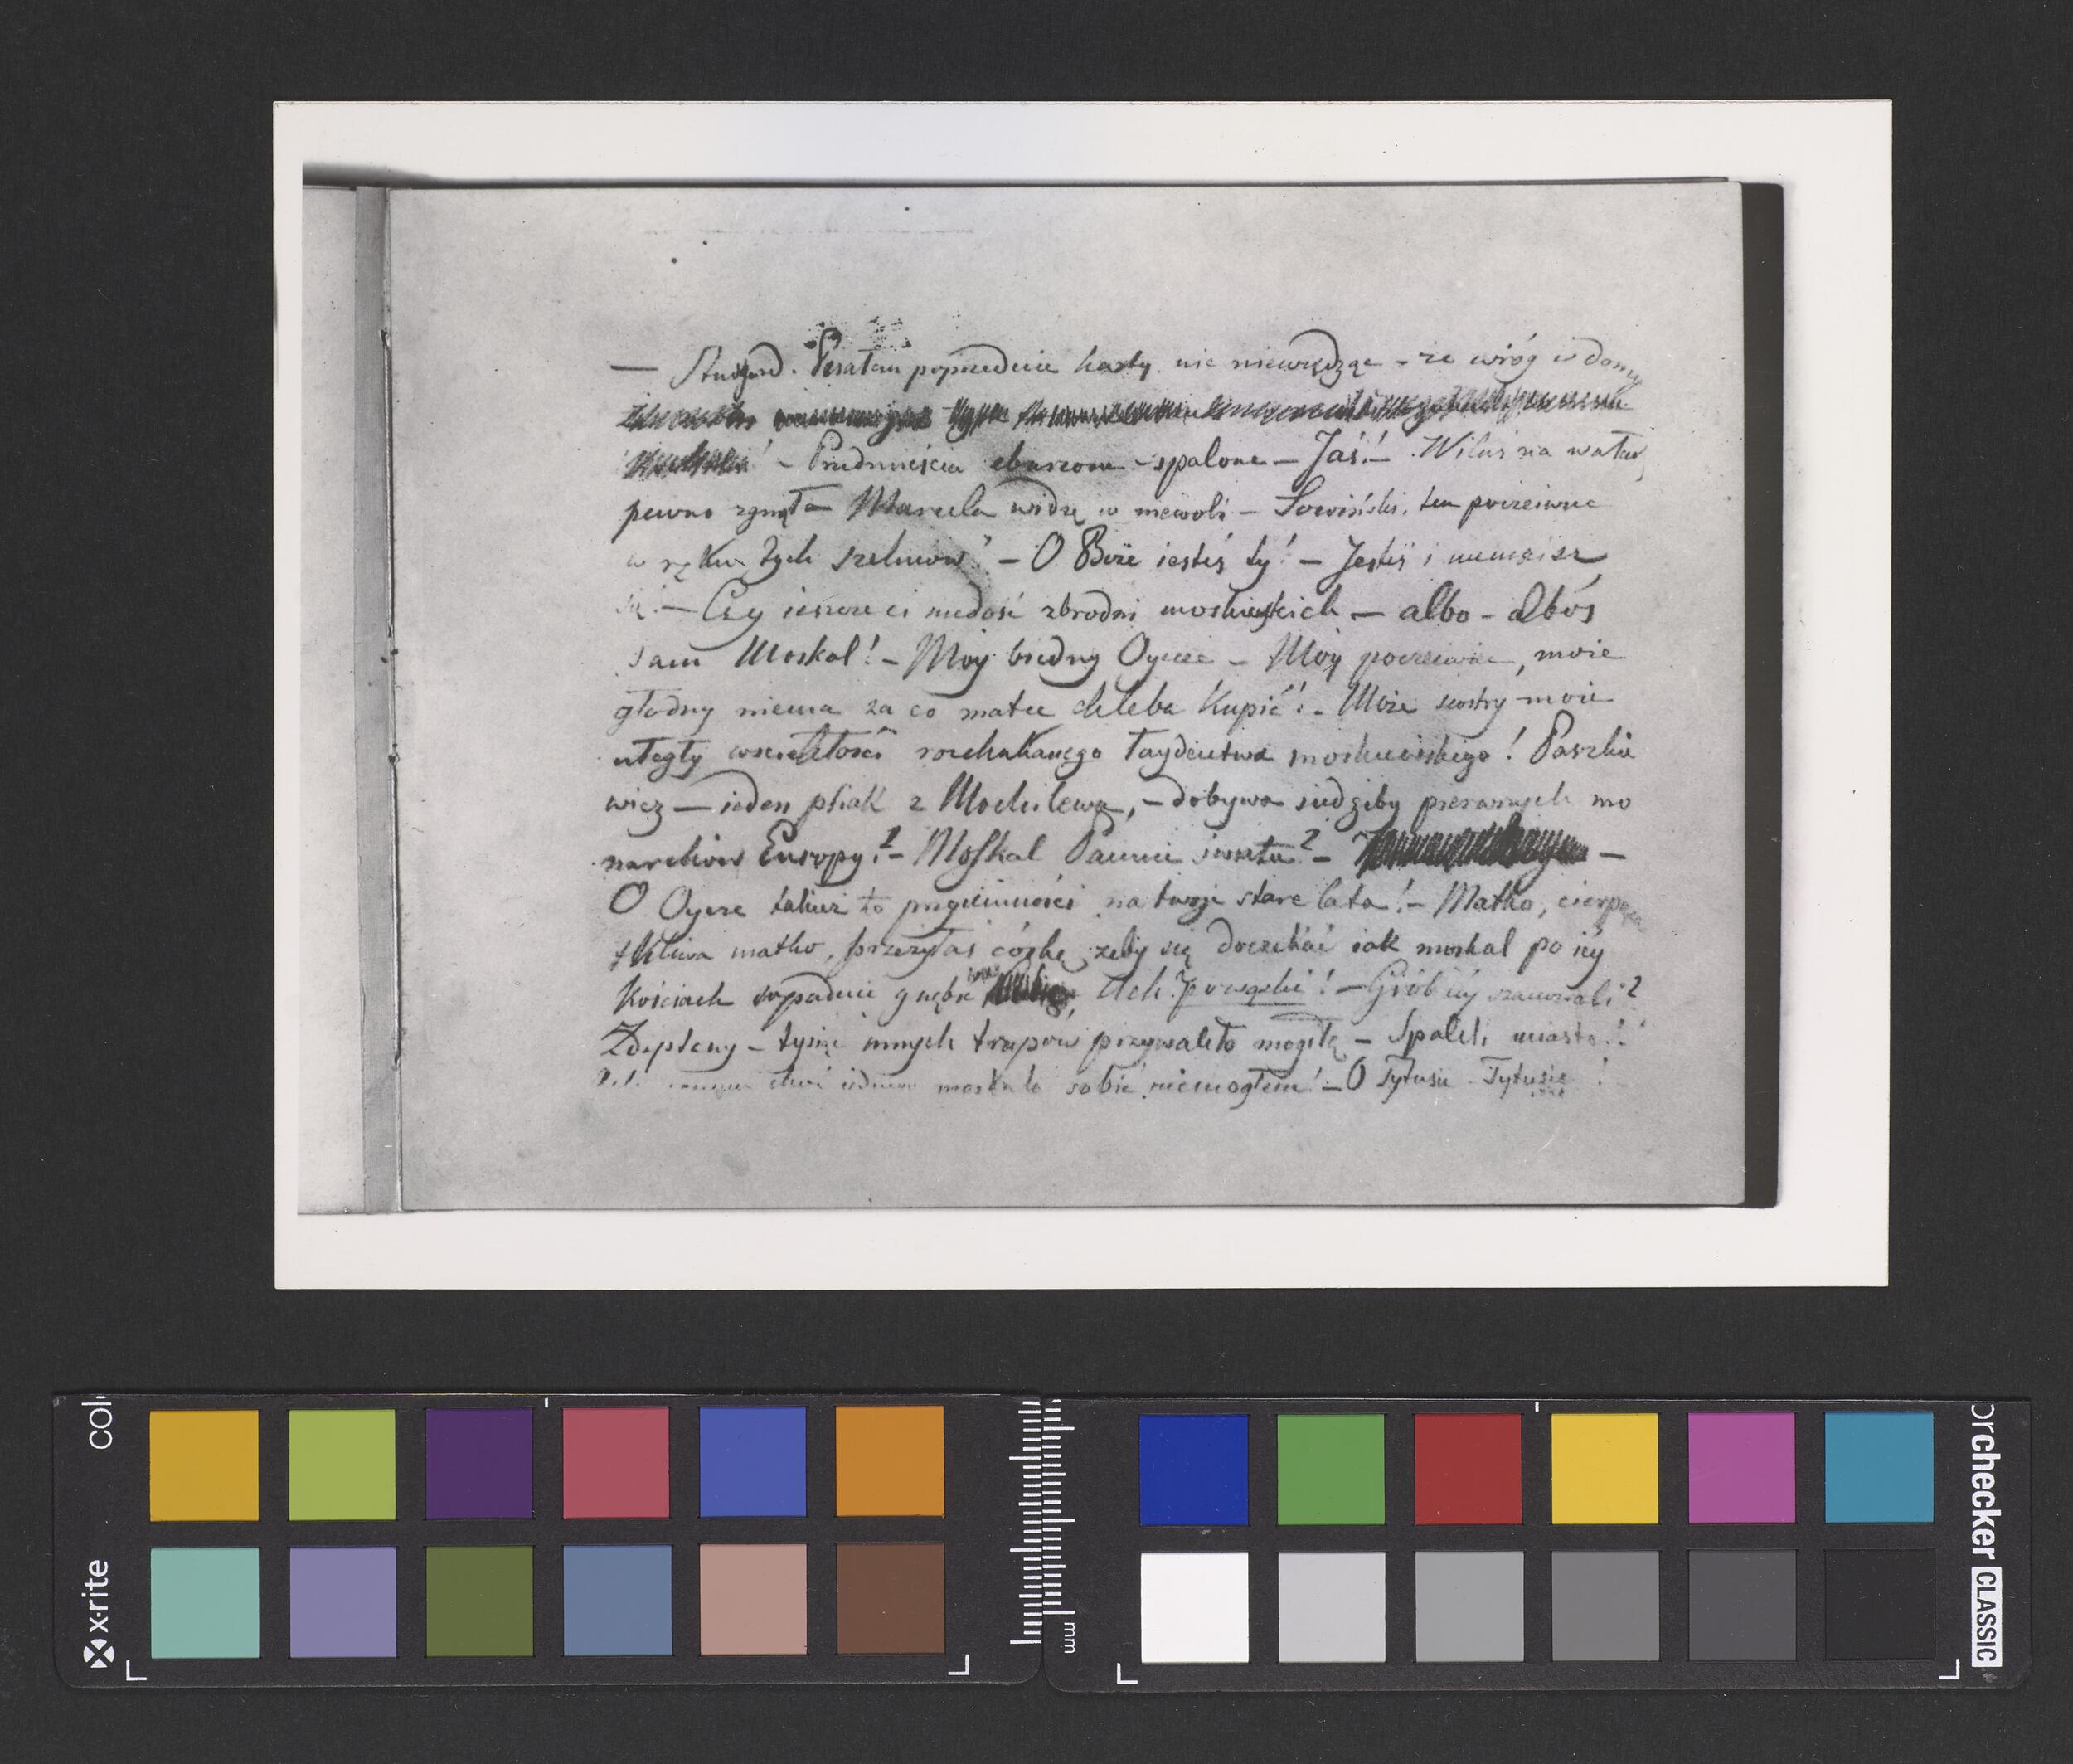 — Stuttgard. Pisałem poprzednie karty nic niewiedząc – że wróg w domu
– Przedmieścia zburzone – spalone – Jaś! – Wiluś na wałach
pewno zginął – Marcela widzę w niewoli – Sowiński, ten poczciwiec
w ręku tych szelmów! – O Boże jesteś ty! – Jesteś i niemścisz
się! – Czy jeszcze ci niedość zbrodni moskiewskich – albo – alboś
sam Moskal! – Móy biedny Oyciec – Móy poczciwiec, może
głodny niema za co matce chleba kupić! – Może siostry moie
uległy wściekłości rozhukanego łaydactwa moskiewskiego! Paszkie
wicz – ieden psiak z Mochilewa, – dobywa siedziby pierwszych mo
narchów Europy?! – Moskal Panem świata? – –
O Oycze takież to przyiemności na twoje stare lata! – Matko, cierpiąca
tkliwa matko, przeżyłaś córkę, żeby się doczekać iak moskal po iéy
kościach wpadnie gnębić Ach Powązki! – Grób iéy szanowali?
Zdeptany – tysiąc innych trupów przywaliło mogiłę – Spalili miasto!!
choć iednego moskala zabić niemogłem! – O Tytusie – Tytusie!
x-rite
colorchecker CLASSIC
mm